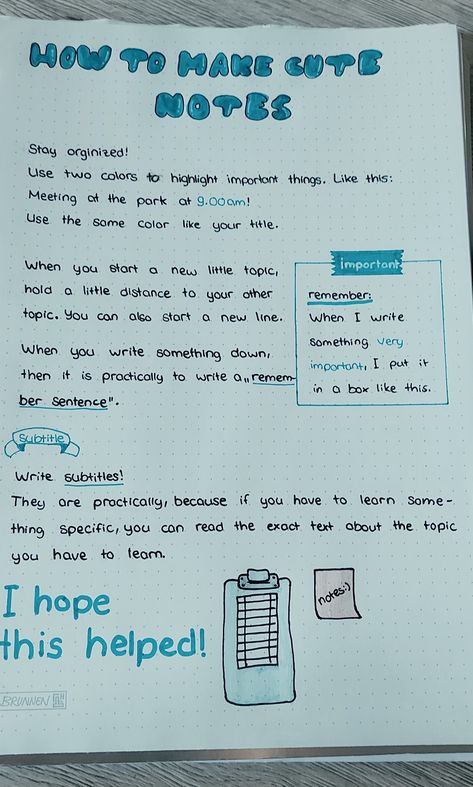 HOW TO MAKE CUTE
NOTES
Stay orginized!
Use two colors to highlight important things. Like this:
Meeting at the park at 9.00am!
Use the same color like your title.
When you start a new little topic,
hold a little distance to your other
topic. You can also start a new line.
When you write something down,
then it is practically to write a „remem-
ber sentence".
important
remember:
When I write
something very
important, I put it
in a box like this.
Subtitle
Write subtitles!
They are practically, because if you have to learn some-
thing specific, you can read the exact text about the topic
you have to learn.
I hope
this helped!
notes:)
BRUNNEN